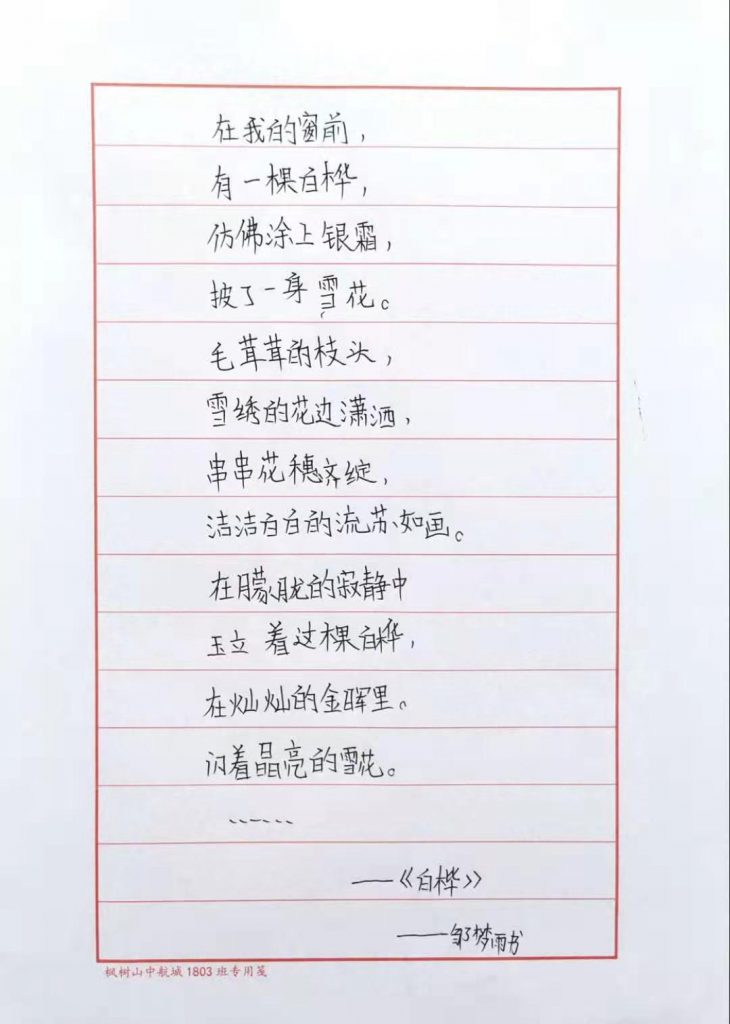 在我的窗前，
有一棵白桦，
仿佛涂上银霜，
披了一身雪花。
毛茸茸的枝头，
雪绣的花边潇洒，
串串花穗齐绽，
洁洁白白的流苏如画。
在朦胧的寂静中
玉立着过棵白桦，
在灿灿的金晖里。
闪着晶亮的雪花。
……
——《白桦》
——邹梦雨书
枫树山中航城1803班专用笺